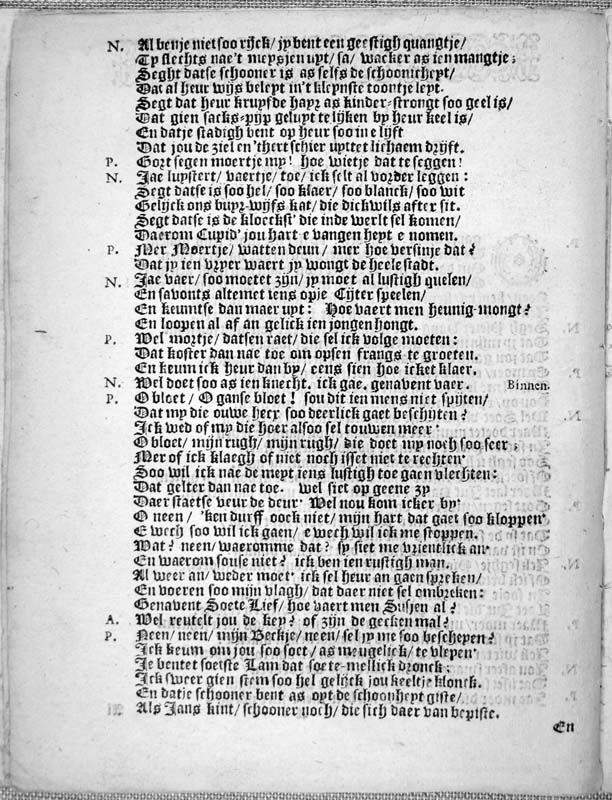 N. Al benje niet soo rijck/ jy bent een geestigh quangtje/
Ty slechts nae't meysjen upt/ sa/ wacker as ien mangtje;
Seght datse schooner is as selfs de schoonicheyt/
Dat al heur wijs beleyt in't kleynste toontje leyt.
Segt dat heur kruysde hayr as kinder-strongt soo geel is/
Dat gien sacks-pyp geluyt te lijken by heur keel is/
En datje stadigh bent op heur soo in e lyft
Dat jou de ziel en 't hert schier uyttet lichaem drijft.
P. Gort segen moertje my! hoe wietje dat te seggen!
N. Jae luystert/ vaertje/ toe/ ick selt al vorder leggen:
Segt datse is soo hel/ soo klaer/ soo blanck/ soo wit
Gelijck ons buyr-wijfs kat/ die dickwils after sit.
Segt datse is de kloeckst' die inde werlt sel komen/
Daerom Cupid' jou hart e vangen heyt e nomen.
P. Mer Moertje/ watten deun/ mer hoe versinje dat?
Dat jy ien vryer waert jy wongt de heele stadt.
N. Jae vaer/ soo moetet zijn/ jy moet al lustigh quelen/
En savonts altemet iens opje Cijter speelen/
En keumtse dan maer uyt: Hoe vaert men heunig-mongt?
En loopen al af an gelick ien jongen hongt.
P. Wel mortje/ datsen raet/ die sel ick volge moeten:
Dat koster dan nae toe om opsen frangs te groeten.
En keum ick heur dan by/ eens sien hoe icket klaer.
N. Wel doet soo as ien knecht. ick gae. genavent vaer. Binnen.
P. O bloet/ O ganse bloet! sou dit ien mens niet spijten/
Dat my die ouwe hecx soo deerlick gaet beschijten?
Ick wed of my die hoer alsoo sel touwen meer·
O bloet/ mijn rugh/ mijn rugh/ die doet my noch soo seer;
Mer of ick klaegh of niet noch isset niet te rechten·
Soo wil ick nae de meyt iens lustigh toe gaen vlechten:
Dat gelter dan nae toe. wel siet op geene zy
Daer staetse veur de deur· Wel nou kom icker by·
O neen/ 'ken durff oock niet/ mijn hart dat gaet soo kloppen·
E wech soo wil ick gaen/ e wech wil ick me stoppen.
Wat? neen/ waeromme dat? sy siet me vrientlick an·
En waerom souse niet? ick ben ien rustigh man.
Al weer an/ weder moet· ick sel heur an gaen spreken/
En voeren soo mijn vlagh/ dat daer niet sel ombreken:
Genavent Soete Lief/ hoe vaert men Susjen al?
A. Wel reutelt jou de key? of zijn de gecken mal?
P. Neen/ neen/ mijn Beckje/ neen/ sel jy me soo beschepen?
Ick keum om jou soo soet/ as meugelick/ te vlepen·
Je bentet soetste Lam dat soete-mellick dronck:
Ick sweer gien stem soo hel gelijck jou keeltje klonck.
En datje schooner bent as oyt de schoonheyt giste/
Als Jans kint/ schooner noch/ die sich daer van bepiste.
En